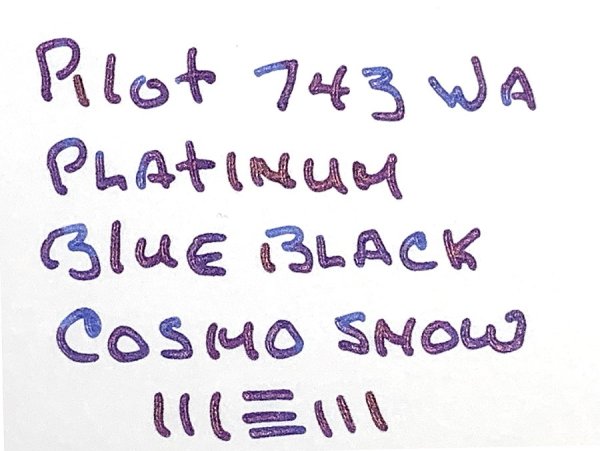 Pilot 743 WA
PLATINUM
BLUE BLACK
COSMO SNOW